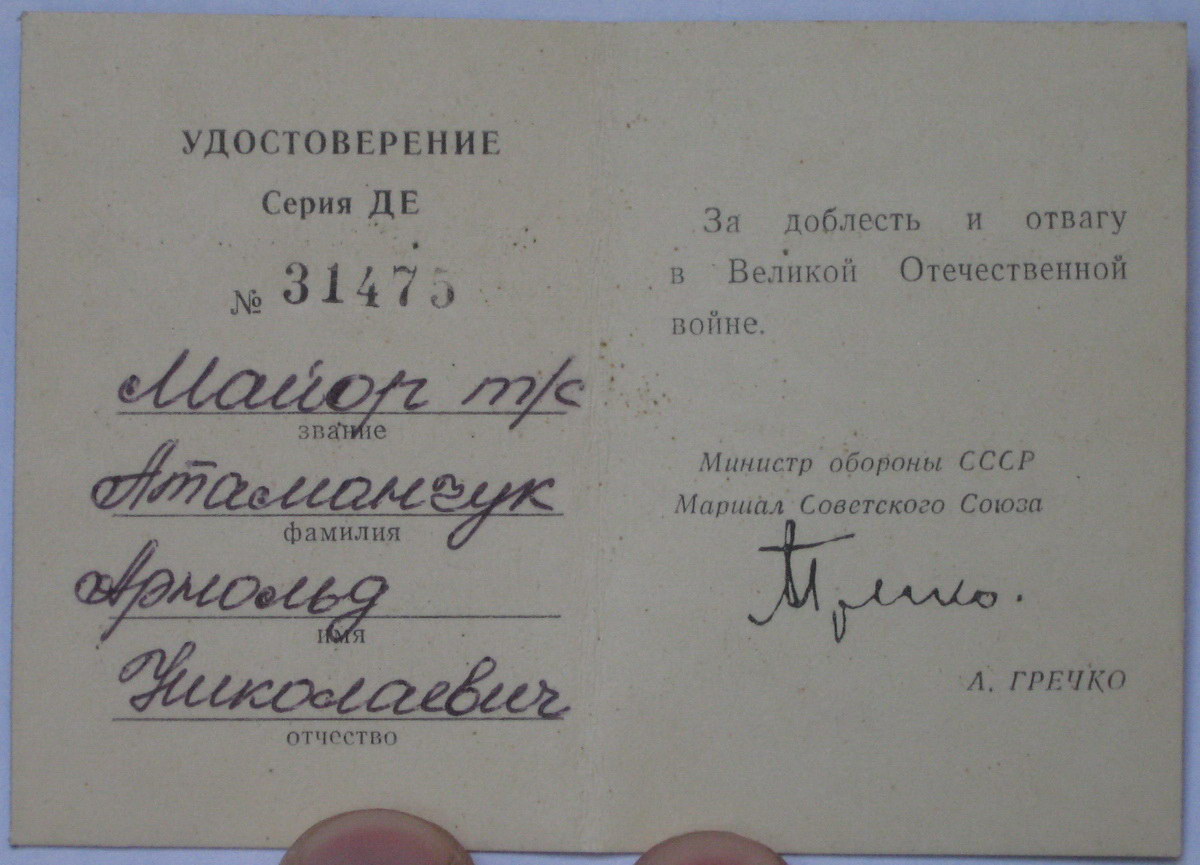 УДОСТОВЕРЕНИЕ
Серия ДЕ
№ 31475
Майор т/с
звание
Атаманчук
фамилия
Арнольд
имя
Николаевич
отчество
За доблесть и отвагу
в Великой Отечественной
войне.
Министр обороны СССР
Маршал Советского Союза
А. ГРЕЧКО